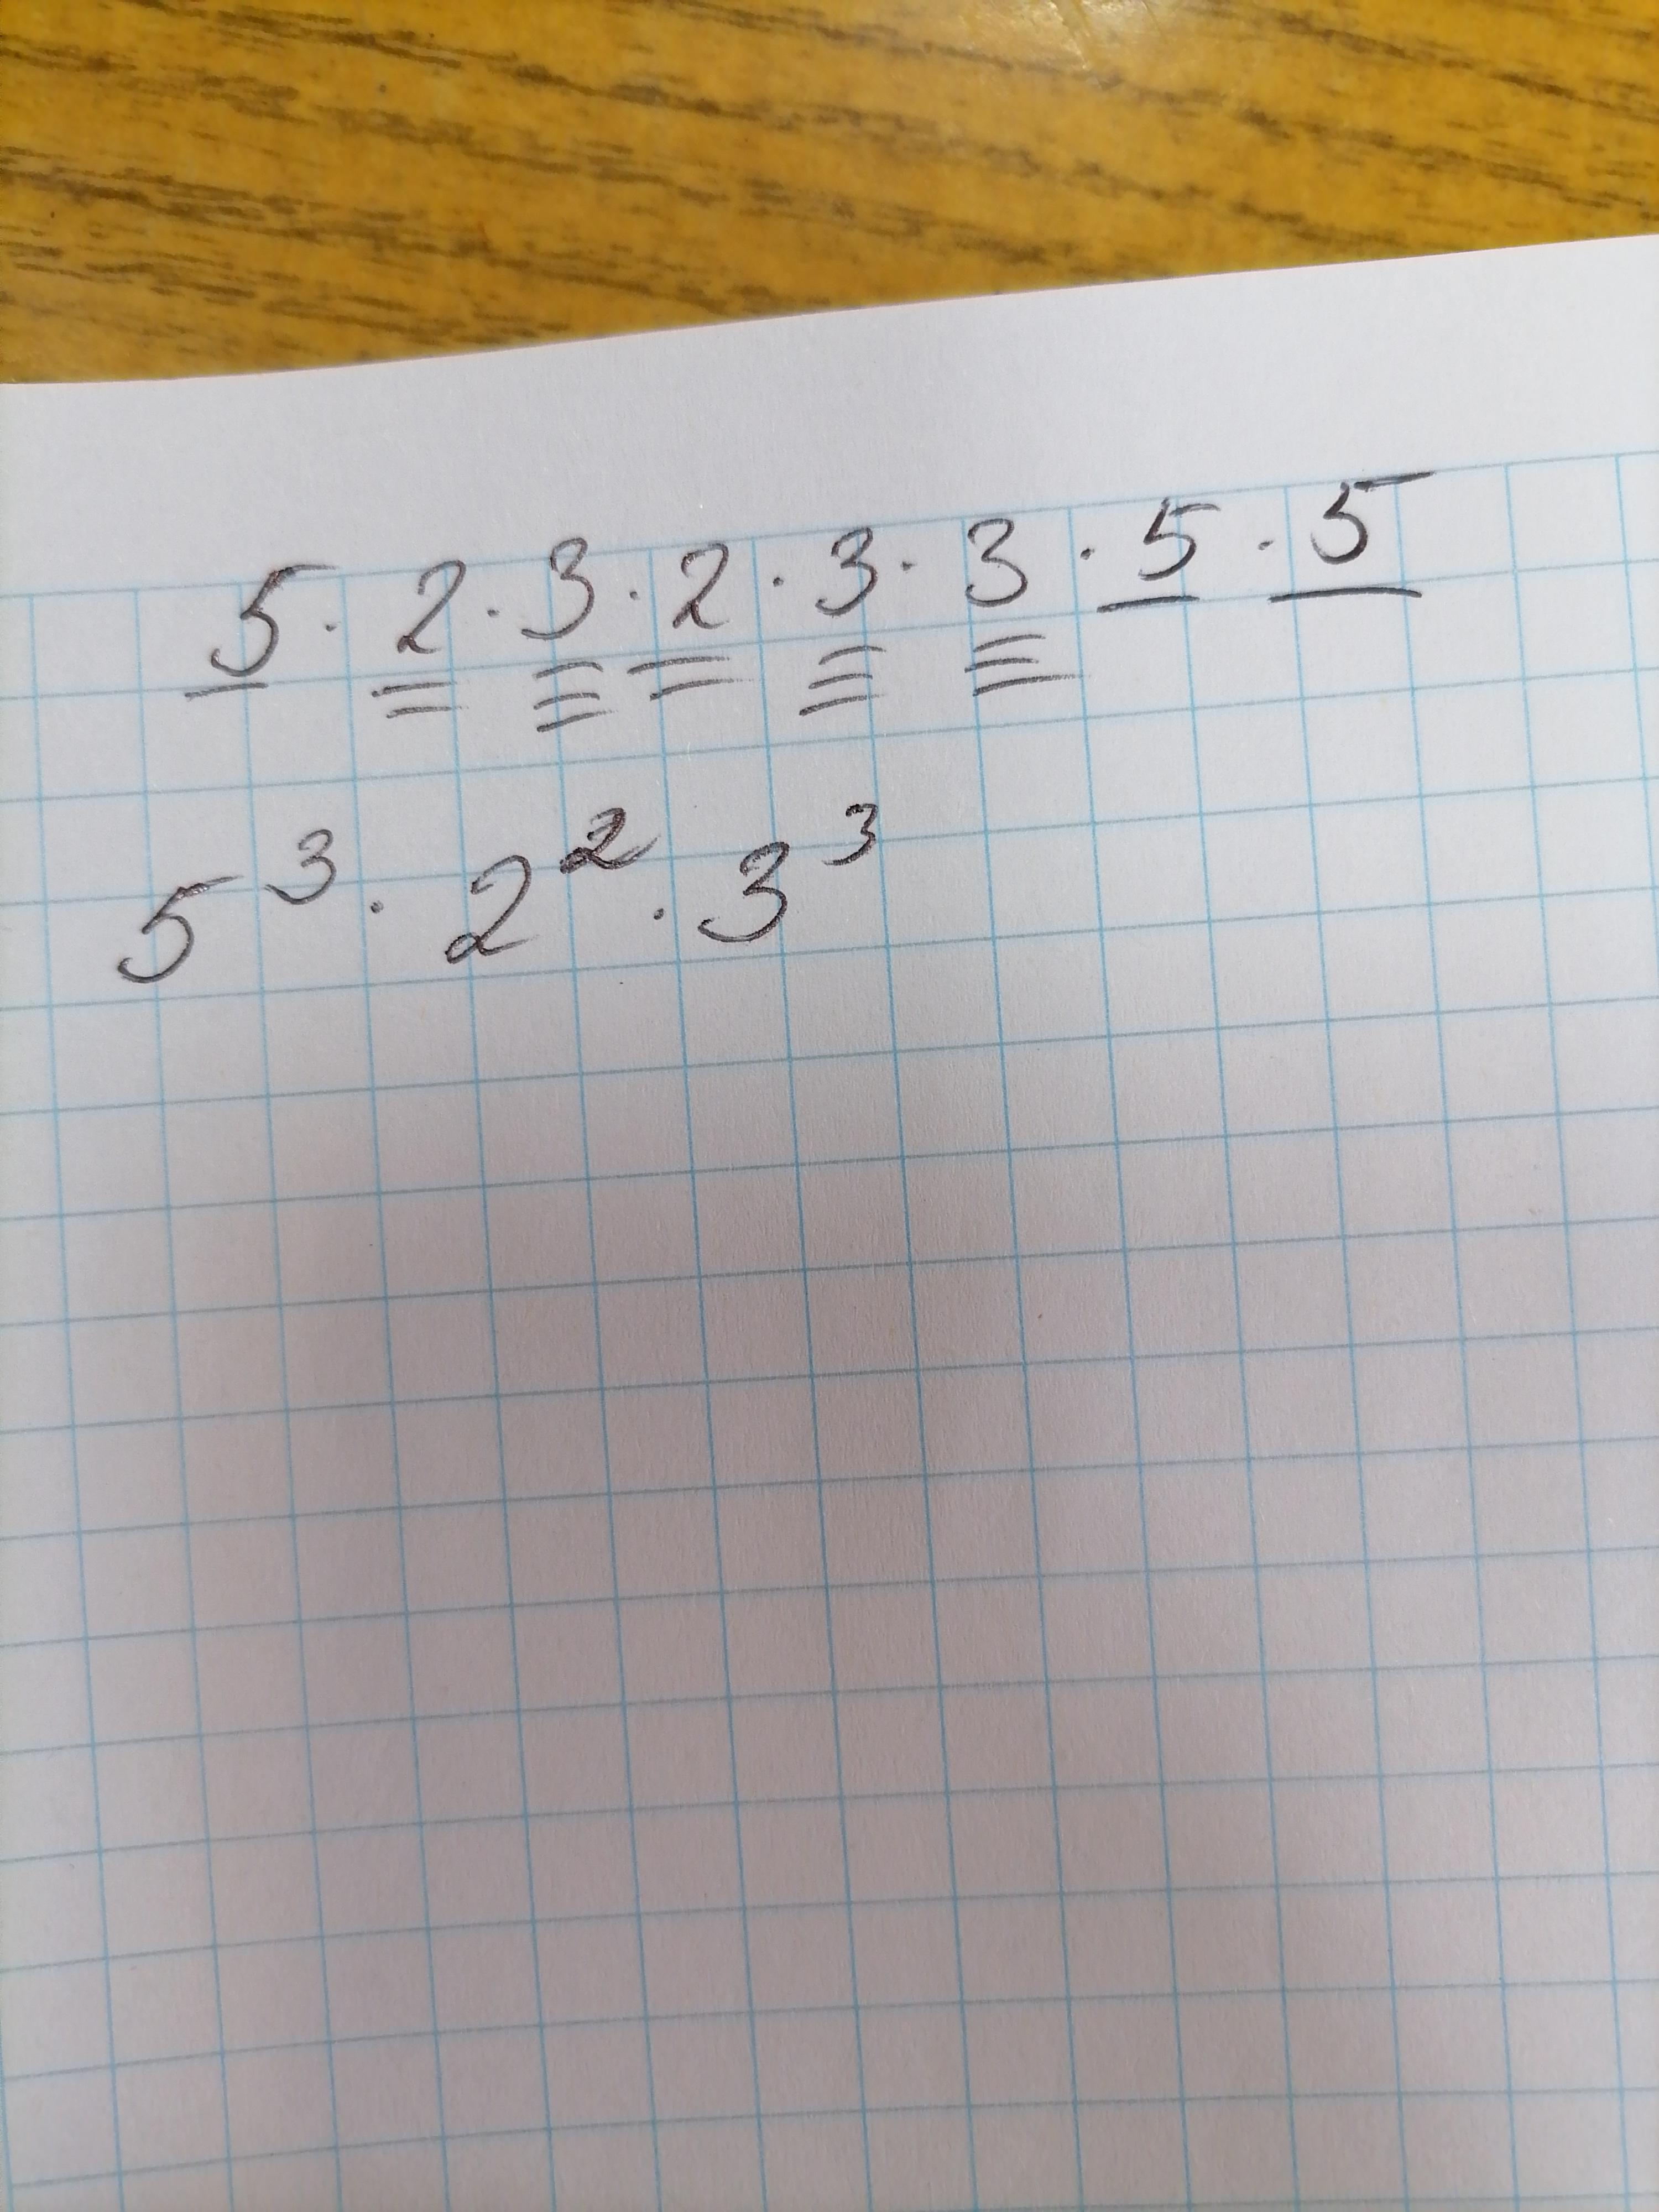 5 · 2 · 3 · 2 · 3 · 3 · 5 · 5
5³ · 2² · 3³